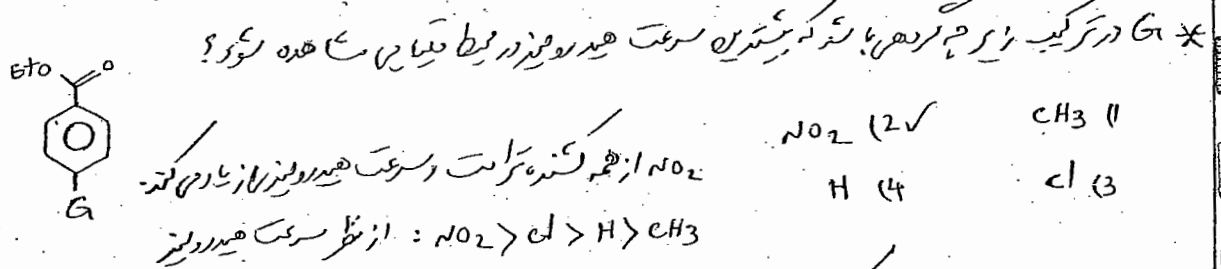 * G در ترکیب زیر چه گروهی باشد که بیشترین سرعت هیدرولیز در محیط قلیایی مشاهده شود؟
EtO O
CH3 (1
NO2 (2 ✓
Cl (3
H (4
G
NO2 از همه کشنده‌تر است و سرعت هیدرولیز را زیاد می‌کند.
از نظر سرعت هیدرولیز : NO2 > Cl > H > CH3